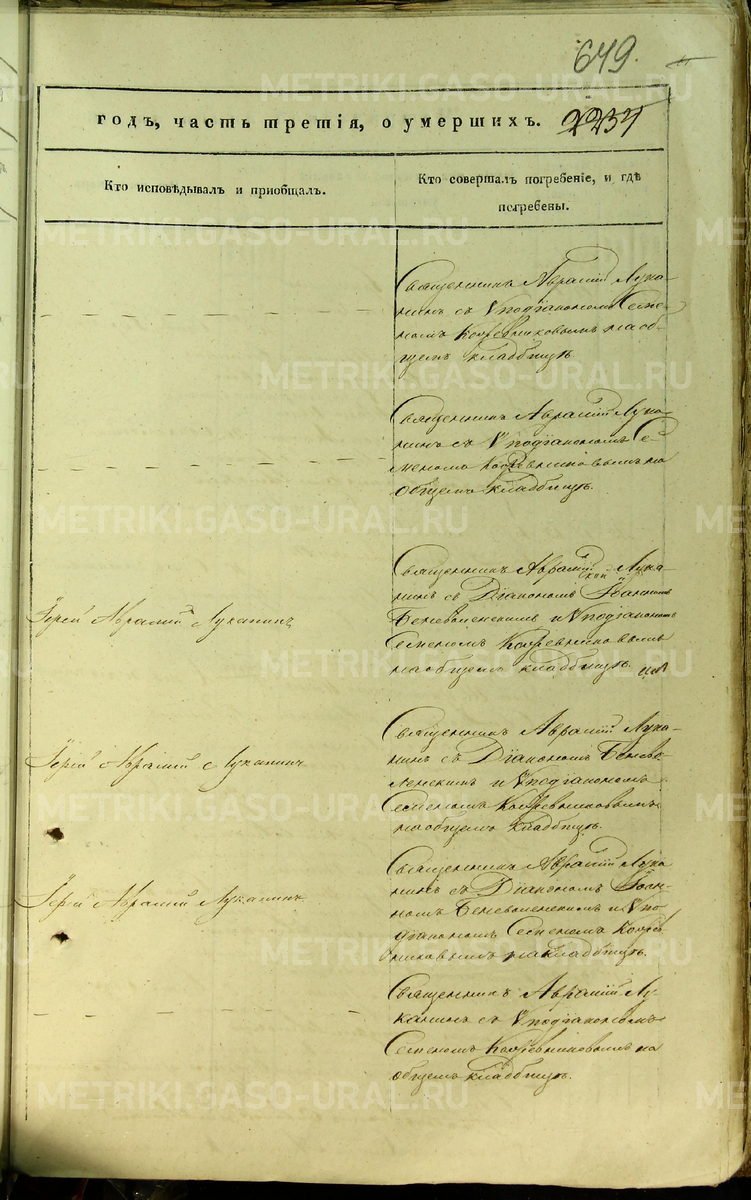 649.
годъ, часть третія, о умершихъ. 2237
Кто исповѣдывалъ и пріобщалъ.
Кто совершалъ погребеніе, и гдѣ
погребены.
Священникъ Аврамій Лука-
нинъ съ Vподіакономъ Семе-
номъ Кочевниковымъ на об-
щемъ кладбищѣ
Священникъ Аврамій Лука-
нинъ съ Vподіакономъ Се
меномъ на
общемъ кладбищѣ.
Іерей Аврамій Луканинъ
Священникъ Аврамій Лука-
нинъ съ Діакономъ Іоанномъ
Беневоленскимъ и Vподіакономъ
Семеномъ
на общемъ кладбищѣ.
Іерей Аврамій Луканинъ
Священникъ Аврамій Лука-
нинъ съ Діакономъ Бенево
ленскимъ и Vподіакономъ
Семеномъ
на общемъ кладбищѣ.
Іерей Аврамій Луканинъ
Священникъ Аврамій Лука
нинъ съ Діакономъ Іоан-
номъ Беневоленскимъ и Vпо
діакономъ Семеномъ
на кладбищѣ.
Священникъ Аврамій Лу
канинъ съ Vподіакономъ
Семеномъ на
общемъ кладбищѣ.
METRIKI.GASO-URAL.RU